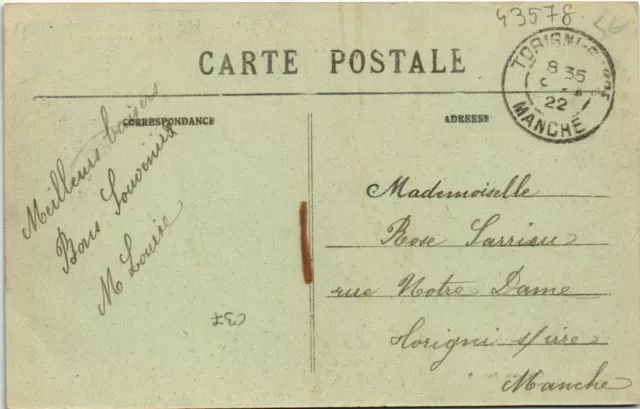 43578
CARTE POSTALE
TORIGNI-S
8 35
22
MANCHE
CORRESPONDANCE
ADRESSE
Meilleurs baisers
Bons Souvenirs
M Louise
Mademoiselle
Rose Sarrieu
rue Notre Dame
Torigni s/vire
Manche
C37